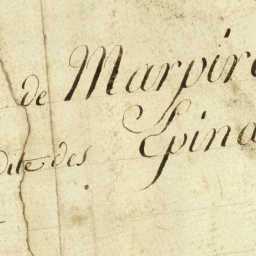 de Marpiré
dite des Epina